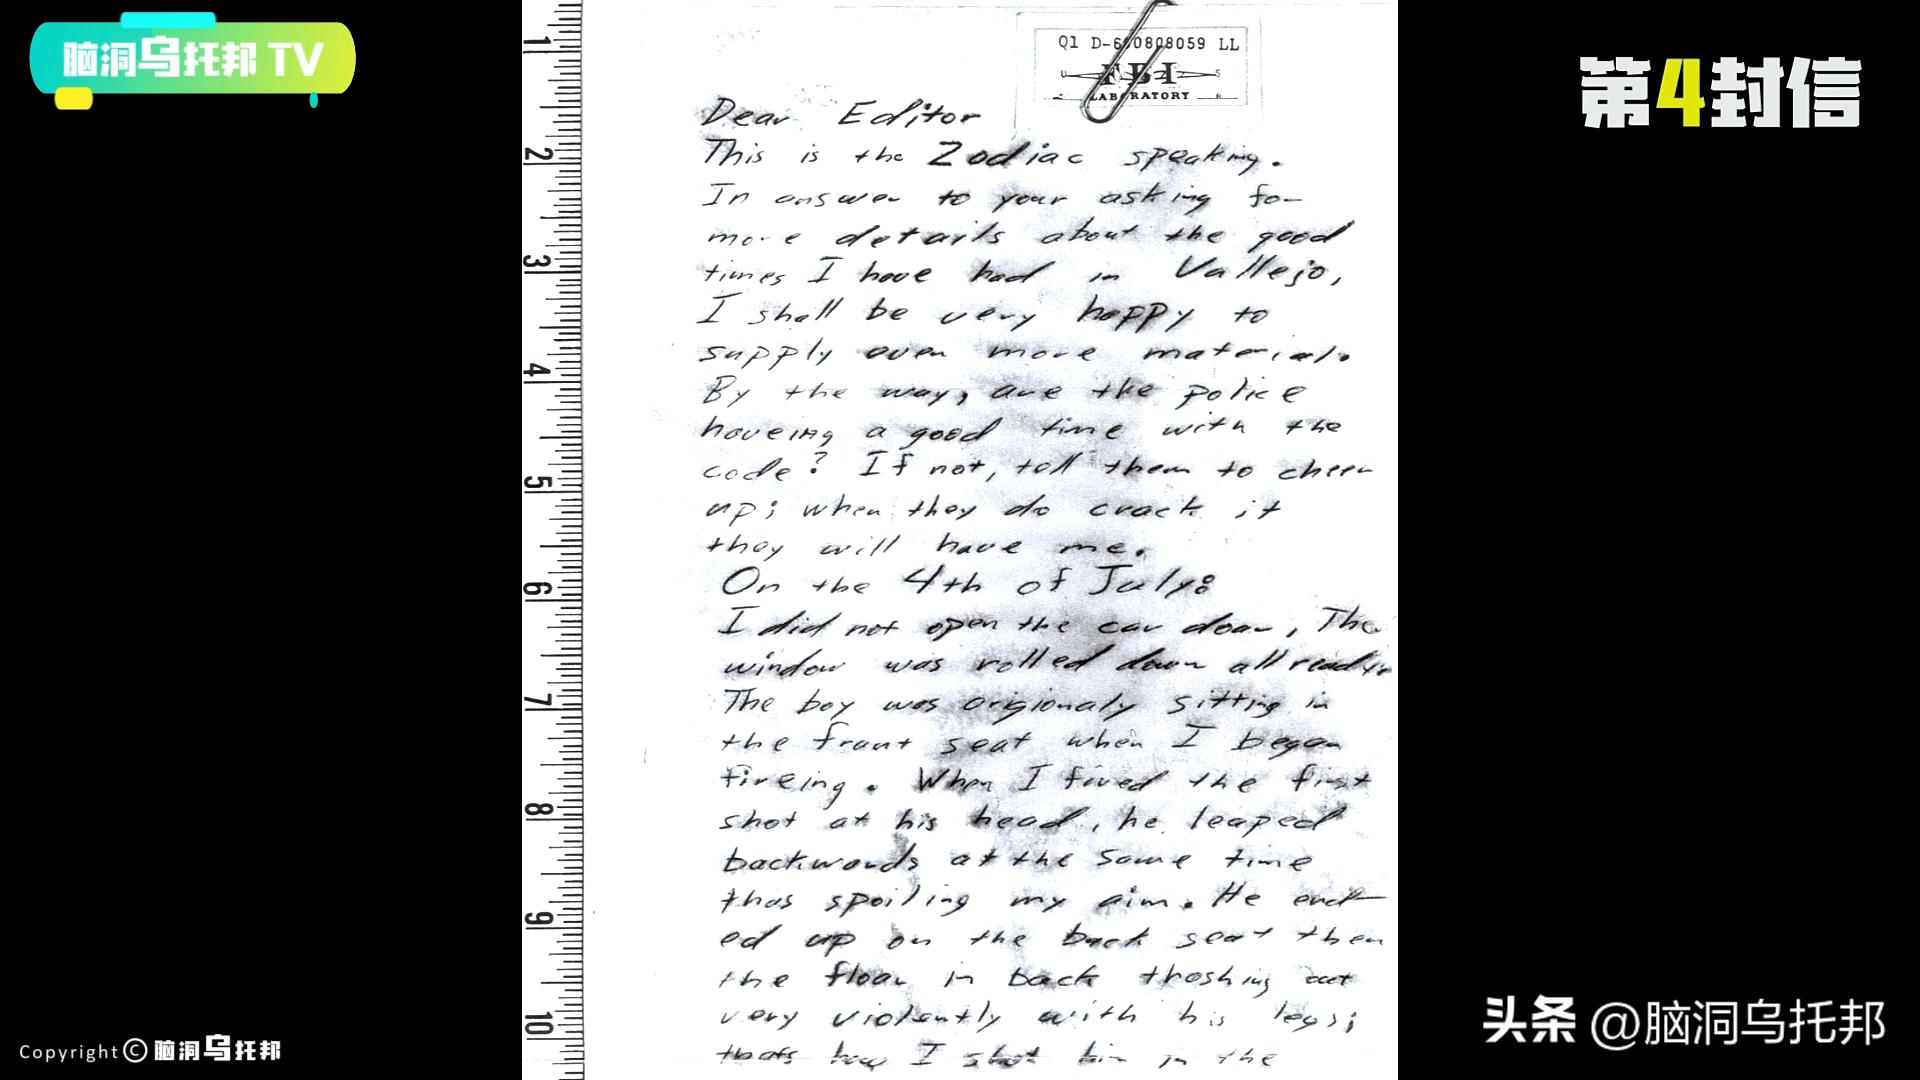 脑洞乌托邦 TV
第4封信
Q1 D-6 0808059 LL
FBI
LABORATORY
Dear Editor
This is the Zodiac speaking.
In answer to your asking for
more details about the good
times I have had in Vallejo,
I shall be very happy to
supply even more material.
By the way, are the police
haveing a good time with the
code? If not, tell them to cheer
up; when they do crack it
they will have me.
On the 4th of July:
I did not open the car door, The
window was rolled down all ready
The boy was origionaly sitting in
the frunt seat when I began
fireing. When I fired the first
shot at his head, he leaped
backwards at the same time
thus spoiling my aim. He end-
ed up on the back seat then
the floor in back thashing out
very violently with his legs;
thats how I shot him in the
1
2
3
4
5
6
7
8
9
10
Copyright © 脑洞乌托邦
头条 @脑洞乌托邦